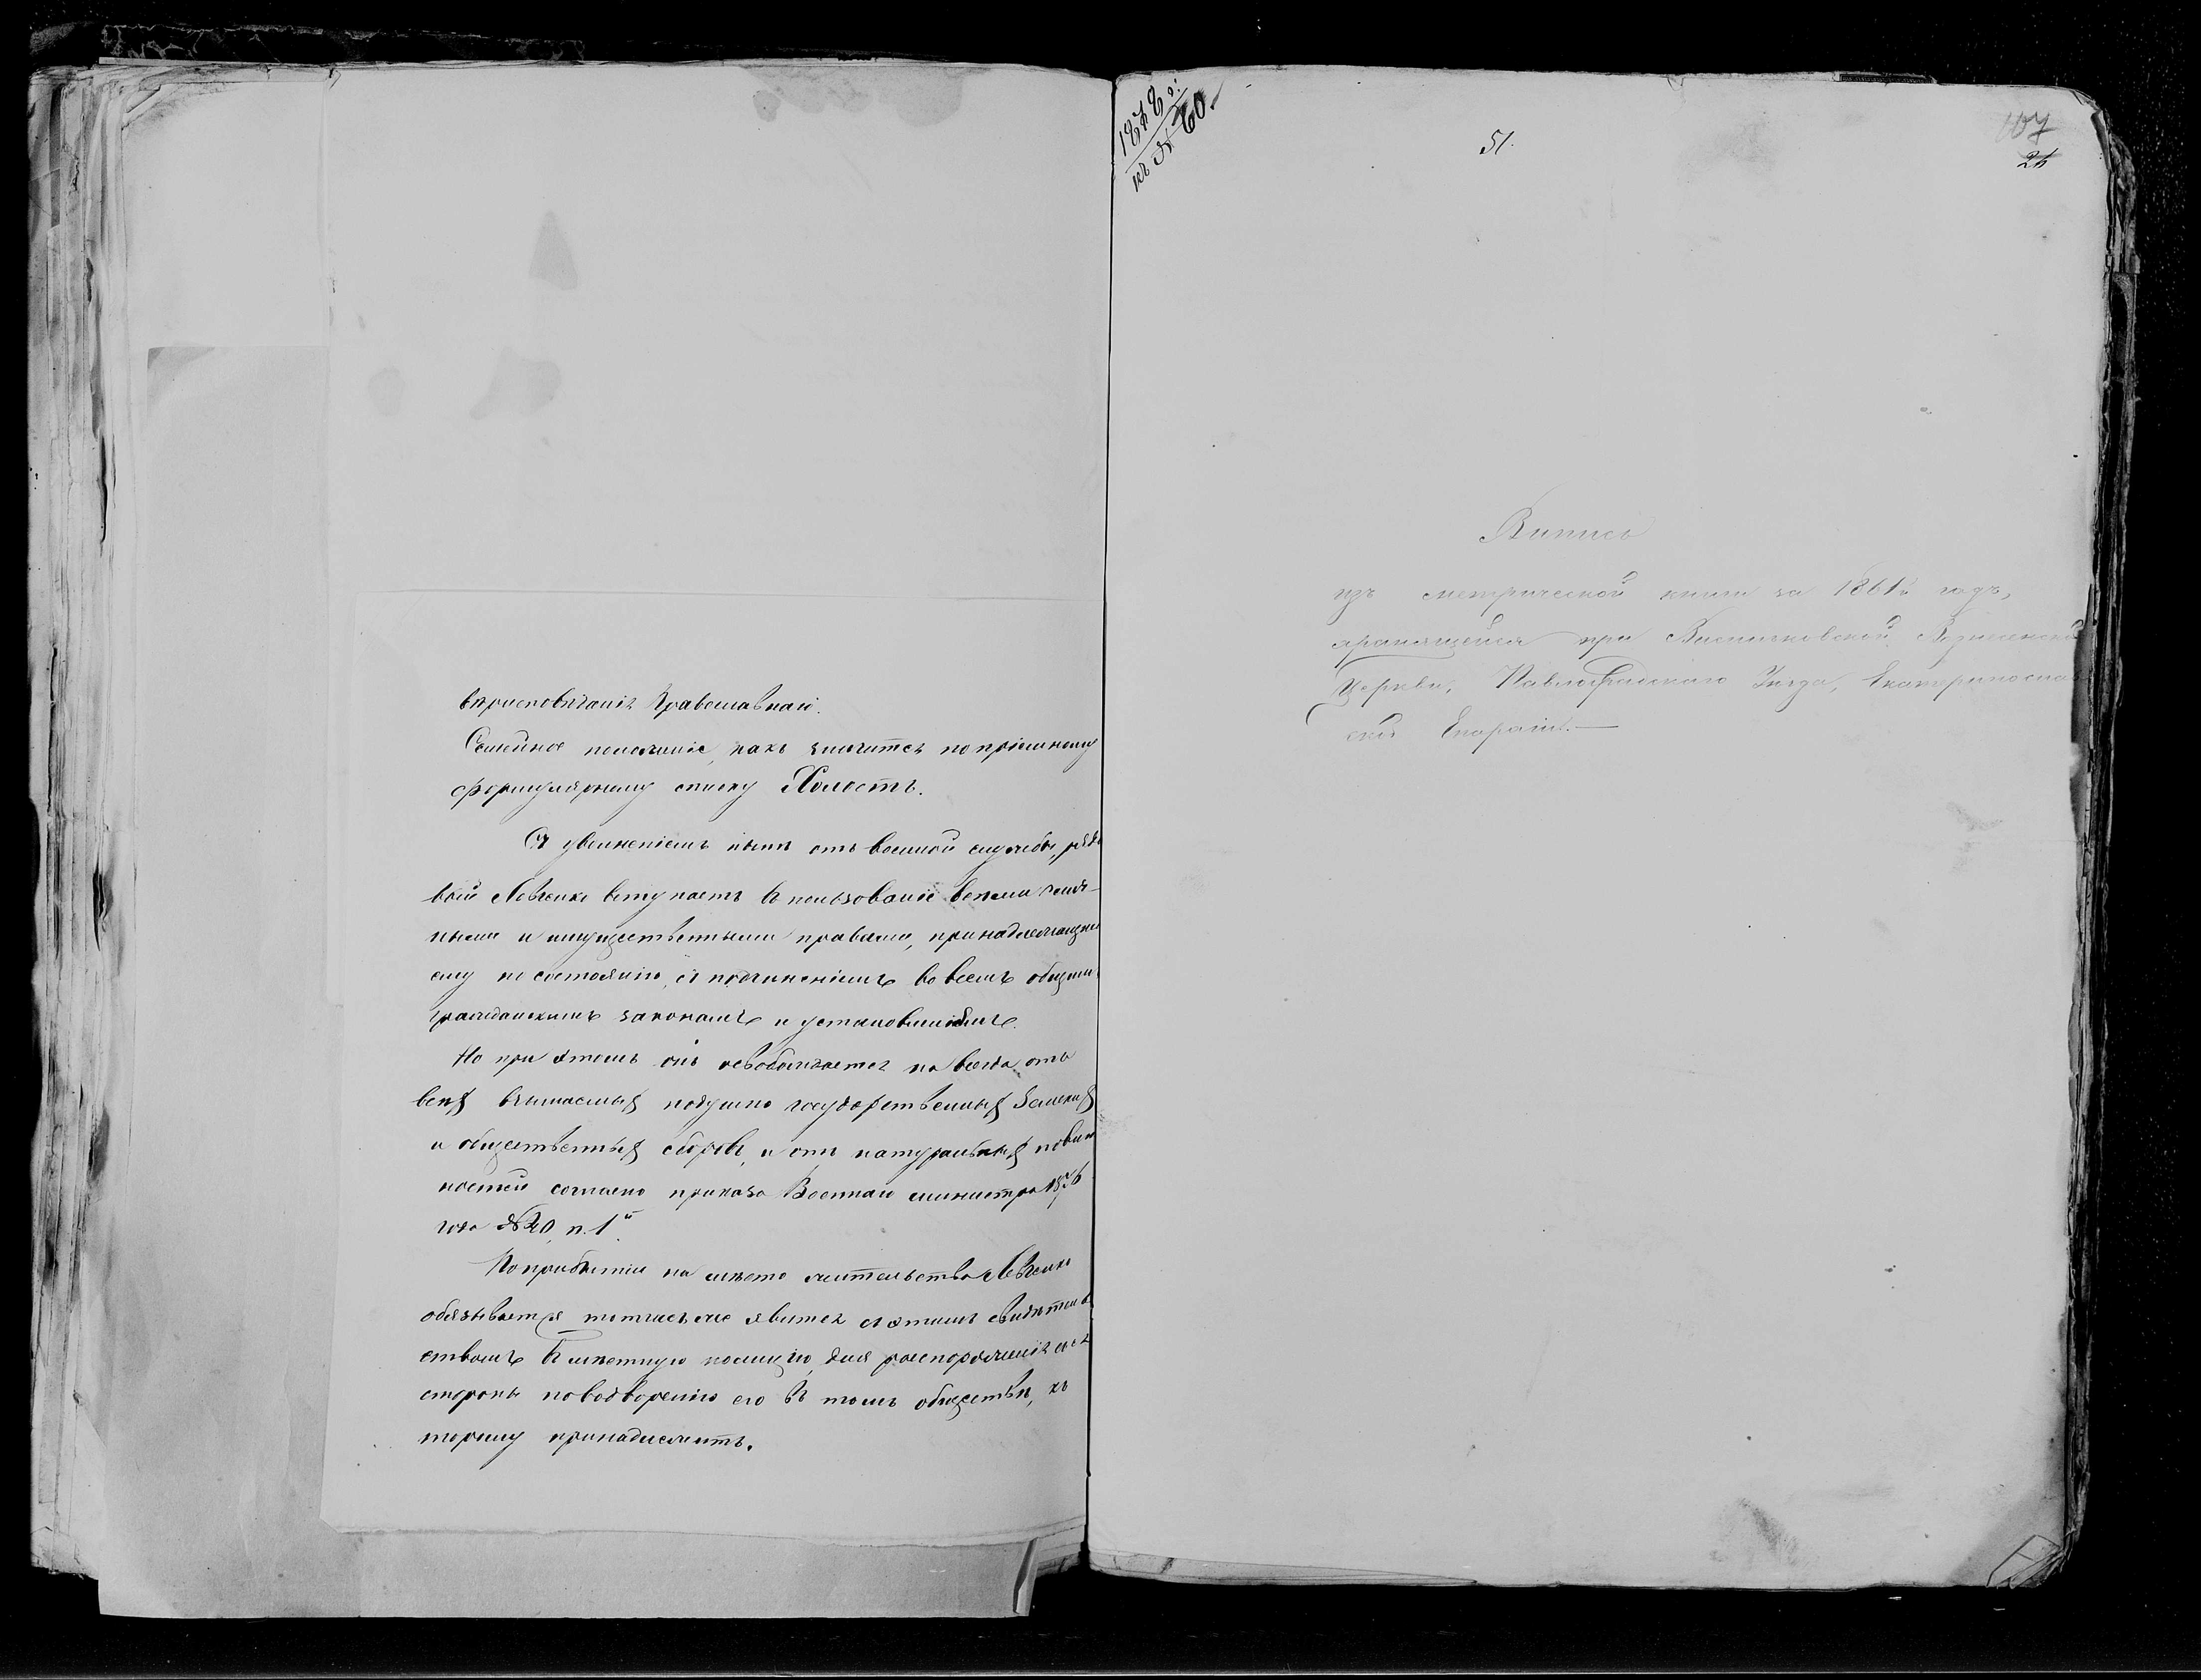 вѣроисповѣданія Православнаго.
Семейное положеніе, какъ значится по пріемному
формулярному списку Холостъ.
Съ увольненіемъ нынѣ отъ военной службы, рядо
вой Левченко вступаетъ въ пользованіе всѣми лич-
ными и имущественными правами, принадлежащими
ему по состоянію, съ подчиненіемъ во всемъ общимъ
гражданскимъ законамъ и установленіямъ.
Но при этомъ онъ освобождается на всегда отъ
всѣхъ взымаемыхъ подушно государственныхъ Земскихъ
и общественныхъ сборовъ, и отъ натуральныхъ повин
ностей согласно приказа Военнаго министра 1876
года № 20, п. 1й.
По прибытіи на мѣсто жительства Левченко
обязывается тотчасъ же явится съ этимъ свидѣтель
ствомъ въ мѣстную полицію, для распоряженія съ ея
стороны по водворенію его въ томъ обществѣ, къ
торому принадлежитъ.
1878 г.
къ № 60.
51.
107
24
Выпись
изъ метрической книги за 1861й годъ,
хранящейся при Вознесенской
Церкви, Павлоградскаго Уѣзда, Екатеринослав
ской Епархіи.—